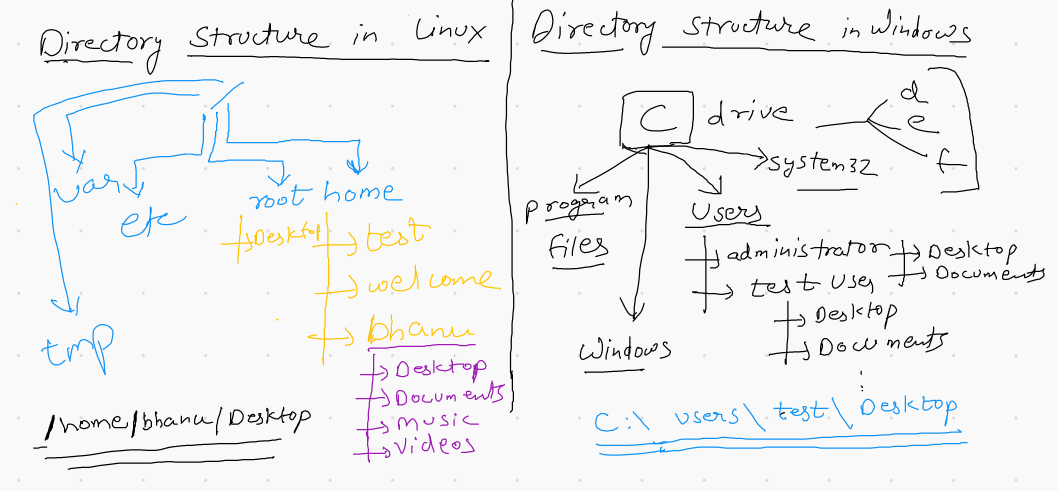 Directory Structure in Linux
/
var
etc
root home
Desktop
test
welcome
bhanu
Desktop
Documents
Music
Videos
tmp
/home/bhanu/Desktop
Directory Structure in Windows
C drive
d
e
f
system32
program
files
Users
administrator
Desktop
Documents
test user
Desktop
Documents
windows
C:\ users\ test\ Desktop